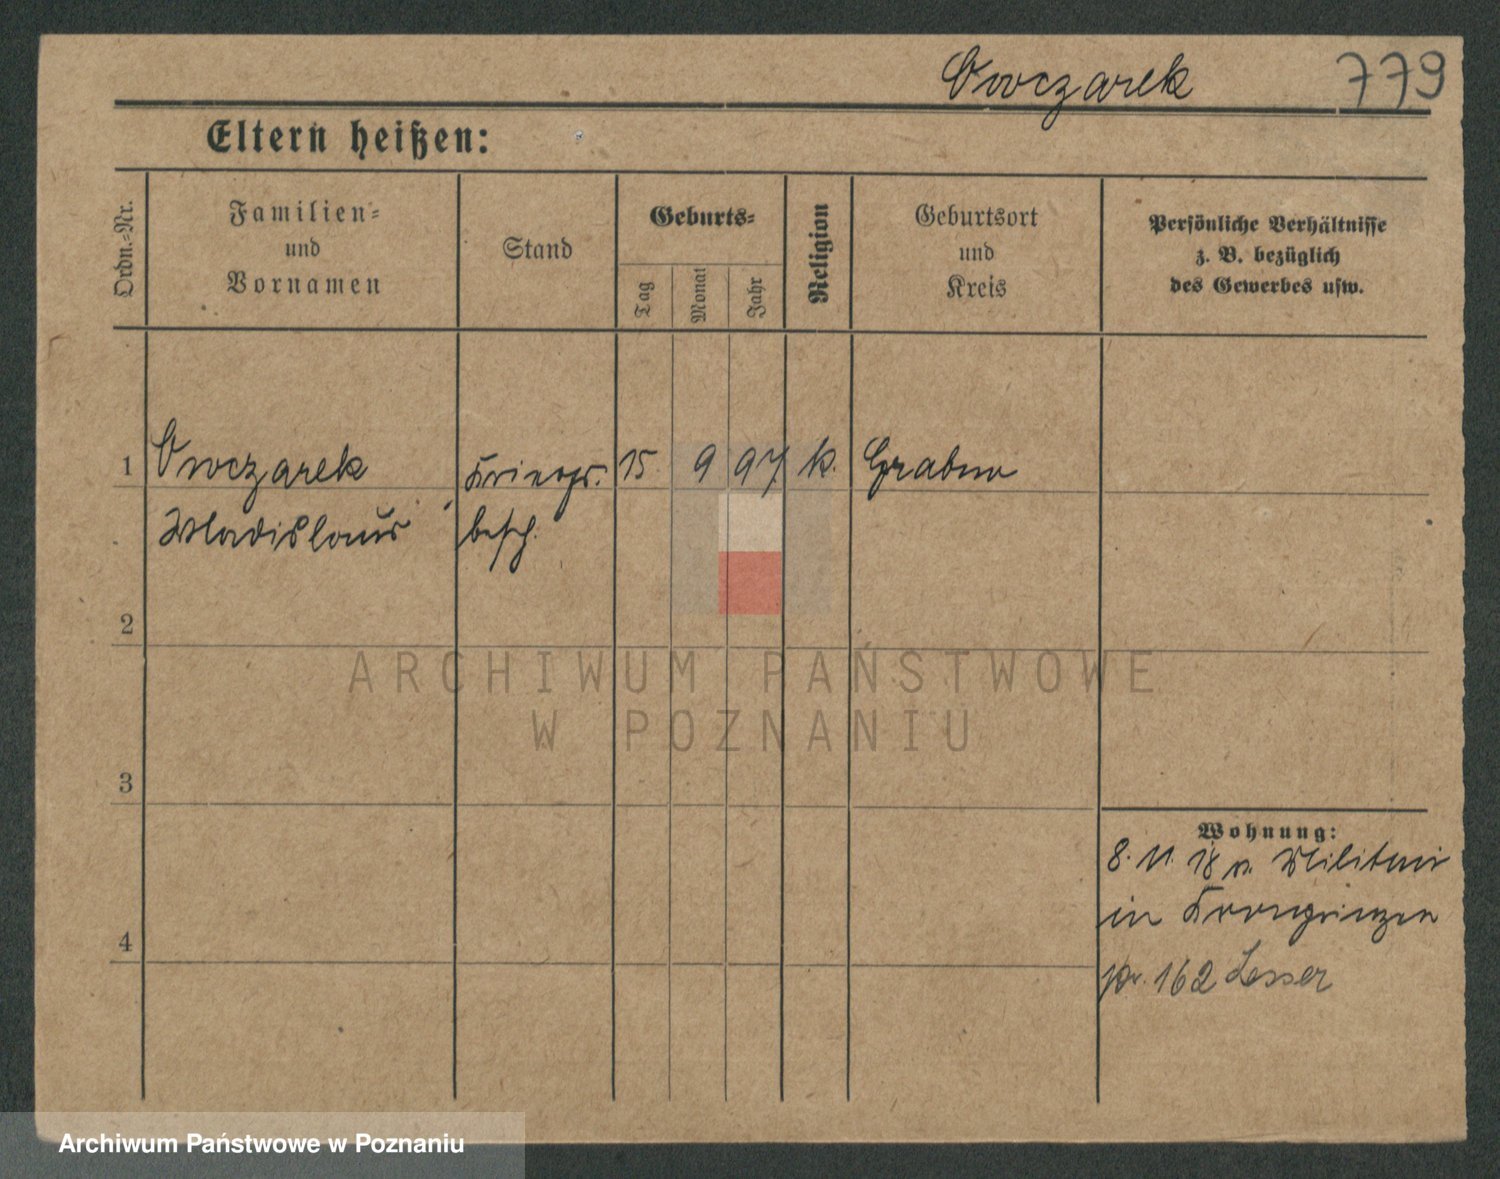 Owczarek 779
Eltern heißen:
Ordn.-Nr.
Familien-
und
Vornamen
Stand
Geburts-
Tag
Monat
Jahr
Religion
Geburtsort
und
Kreis
Persönliche Verhältnisse
z. B. bezüglich
des Gewerbes usw.
1 Owczarek Kriegs- 15. 9 97. k. Grabow
Wladislaus besch.
2
3
4
Wohnung:
8. 11. 18 v. Militär
in
pr. 162 Lesser
ARCHIWUM PAŃSTWOWE
W POZNANIU
Archiwum Państwowe w Poznaniu